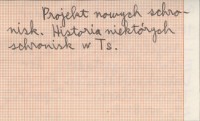 Projekt nowych schro-
nisk. Historia niektórych
schronisk w Ts.